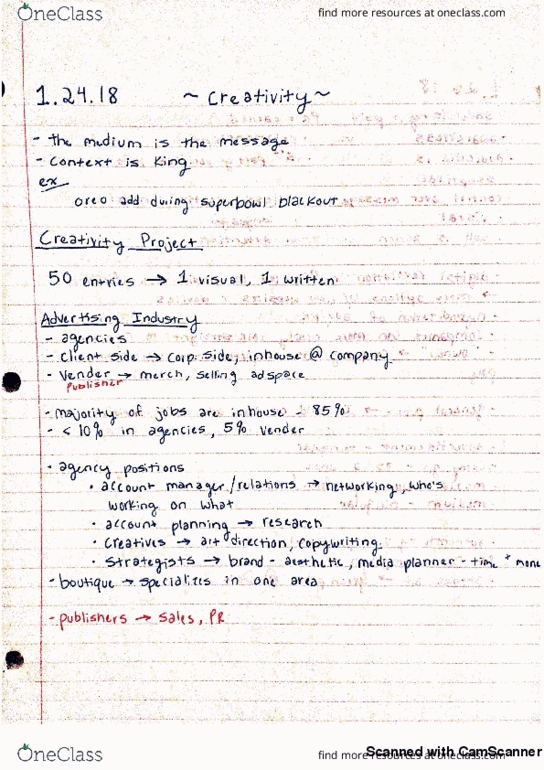 OneClass
find more resources at oneclass.com
1.24.18 ~ Creativity ~
- the medium is the message
- context is King
ex
oreo add during superbowl blackout
Creativity Project
50 entries → 1 visual, 1 written
Advertising Industry
- agencies
- Client side → corp. side, inhouse @ company
- Vender → merch, selling adspace
Publisher
- majority of jobs are inhouse 85%
- < 10% in agencies, 5% vender
- agency positions
• account manager/relations → networking, who's
working on what
• account planning → research
• Creatives → art direction, copywriting
• Strategists → brand - aesthetic, media planner - time + mone
- boutique → specializes in one area
- publishers → sales, PR
OneClass
find more resources at oneclass.com
Scanned with CamScanner